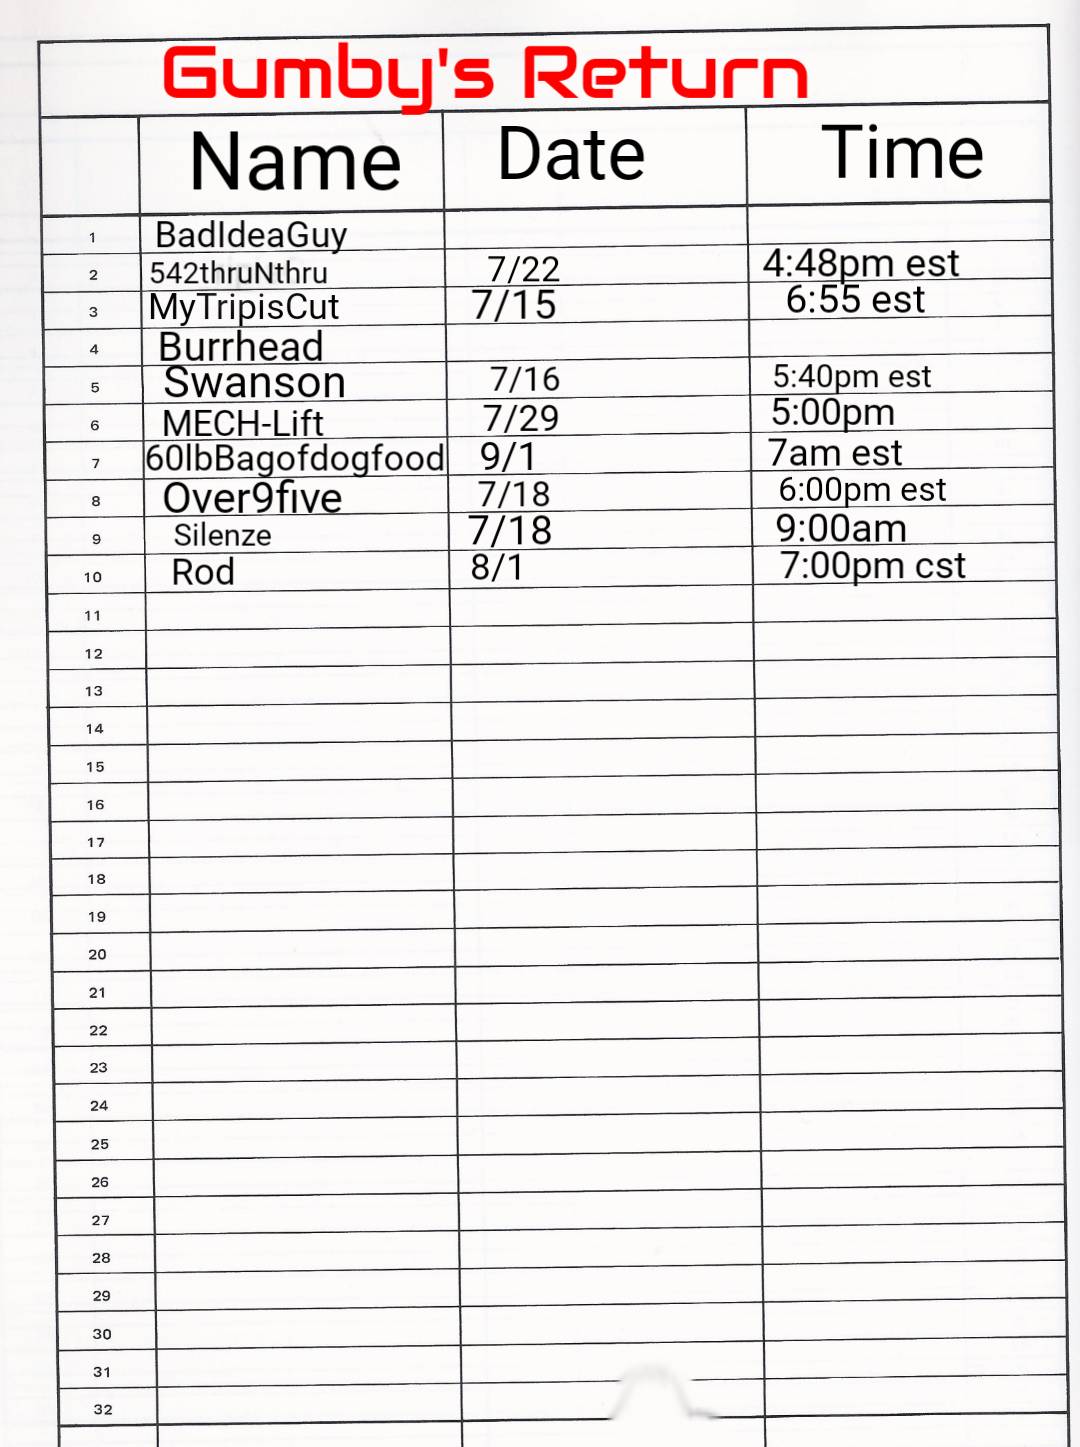 Gumby's Return
Name Date Time
1 BadIdeaGuy
2 542thruNthru 7/22 4:48pm est
3 MyTripisCut 7/15 6:55 est
4 Burrhead
5 Swanson 7/16 5:40pm est
6 MECH-Lift 7/29 5:00pm
7 60lbBagofdogfood 9/1 7am est
8 Over9five 7/18 6:00pm est
9 Silenze 7/18 9:00am
10 Rod 8/1 7:00pm cst
11
12
13
14
15
16
17
18
19
20
21
22
23
24
25
26
27
28
29
30
31
32